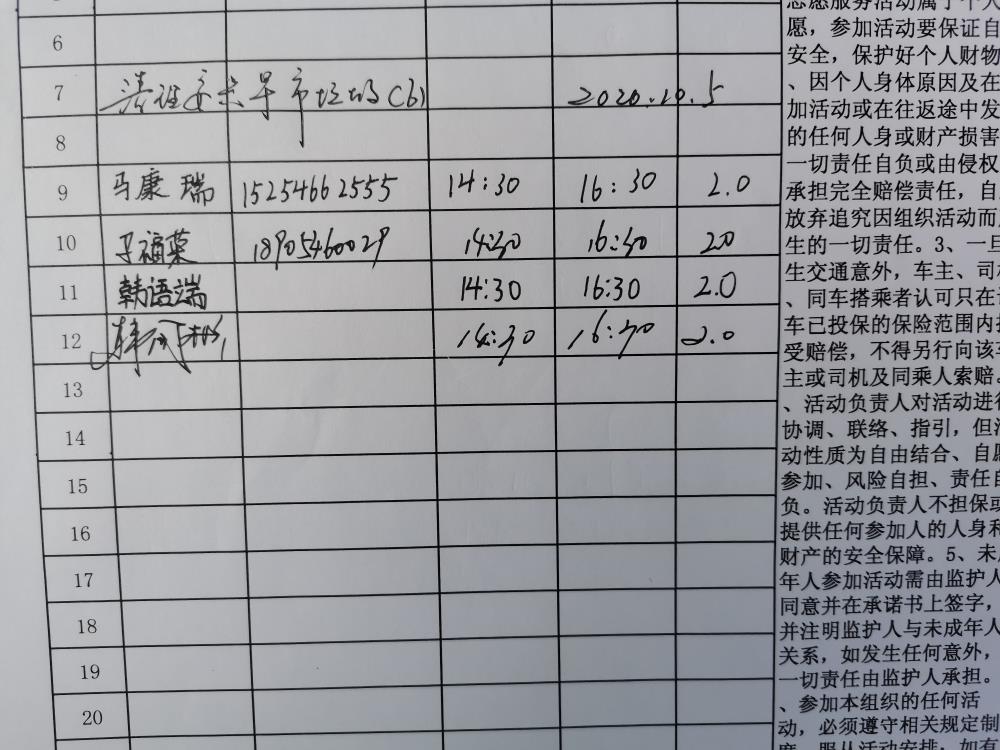 6
7 清理 早市垃圾(6) 2020.10.5
8
9 马康瑞 15254662555 14:30 16:30 2.0
10 福荣 18905460029 14:30 16:30 2.0
11 韩语端 14:30 16:30 2.0
12 14:30 16:30 2.0
13
14
15
16
17
18
19
20
志愿服务活动属于个人
愿，参加活动要保证自
安全，保护好个人财物
、因个人身体原因及在
加活动或在往返途中发
的任何人身或财产损害
一切责任自负或由侵权
承担完全赔偿责任，自
放弃追究因组织活动而
生的一切责任。3、一旦
生交通意外，车主、司
、同车搭乘者认可只在
车已投保的保险范围内
受赔偿，不得另行向该
主或司机及同乘人索赔。
、活动负责人对活动进行
协调、联络、指引，但
动性质为自由结合、自愿
参加、风险自担、责任自
负。活动负责人不担保或
提供任何参加人的人身和
财产的安全保障。5、未
年人参加活动需由监护人
同意并在承诺书上签字，
并注明监护人与未成年人
关系，如发生任何意外，
一切责任由监护人承担。
、参加本组织的任何活
动，必须遵守相关规定制
度，服从活动安排，如有